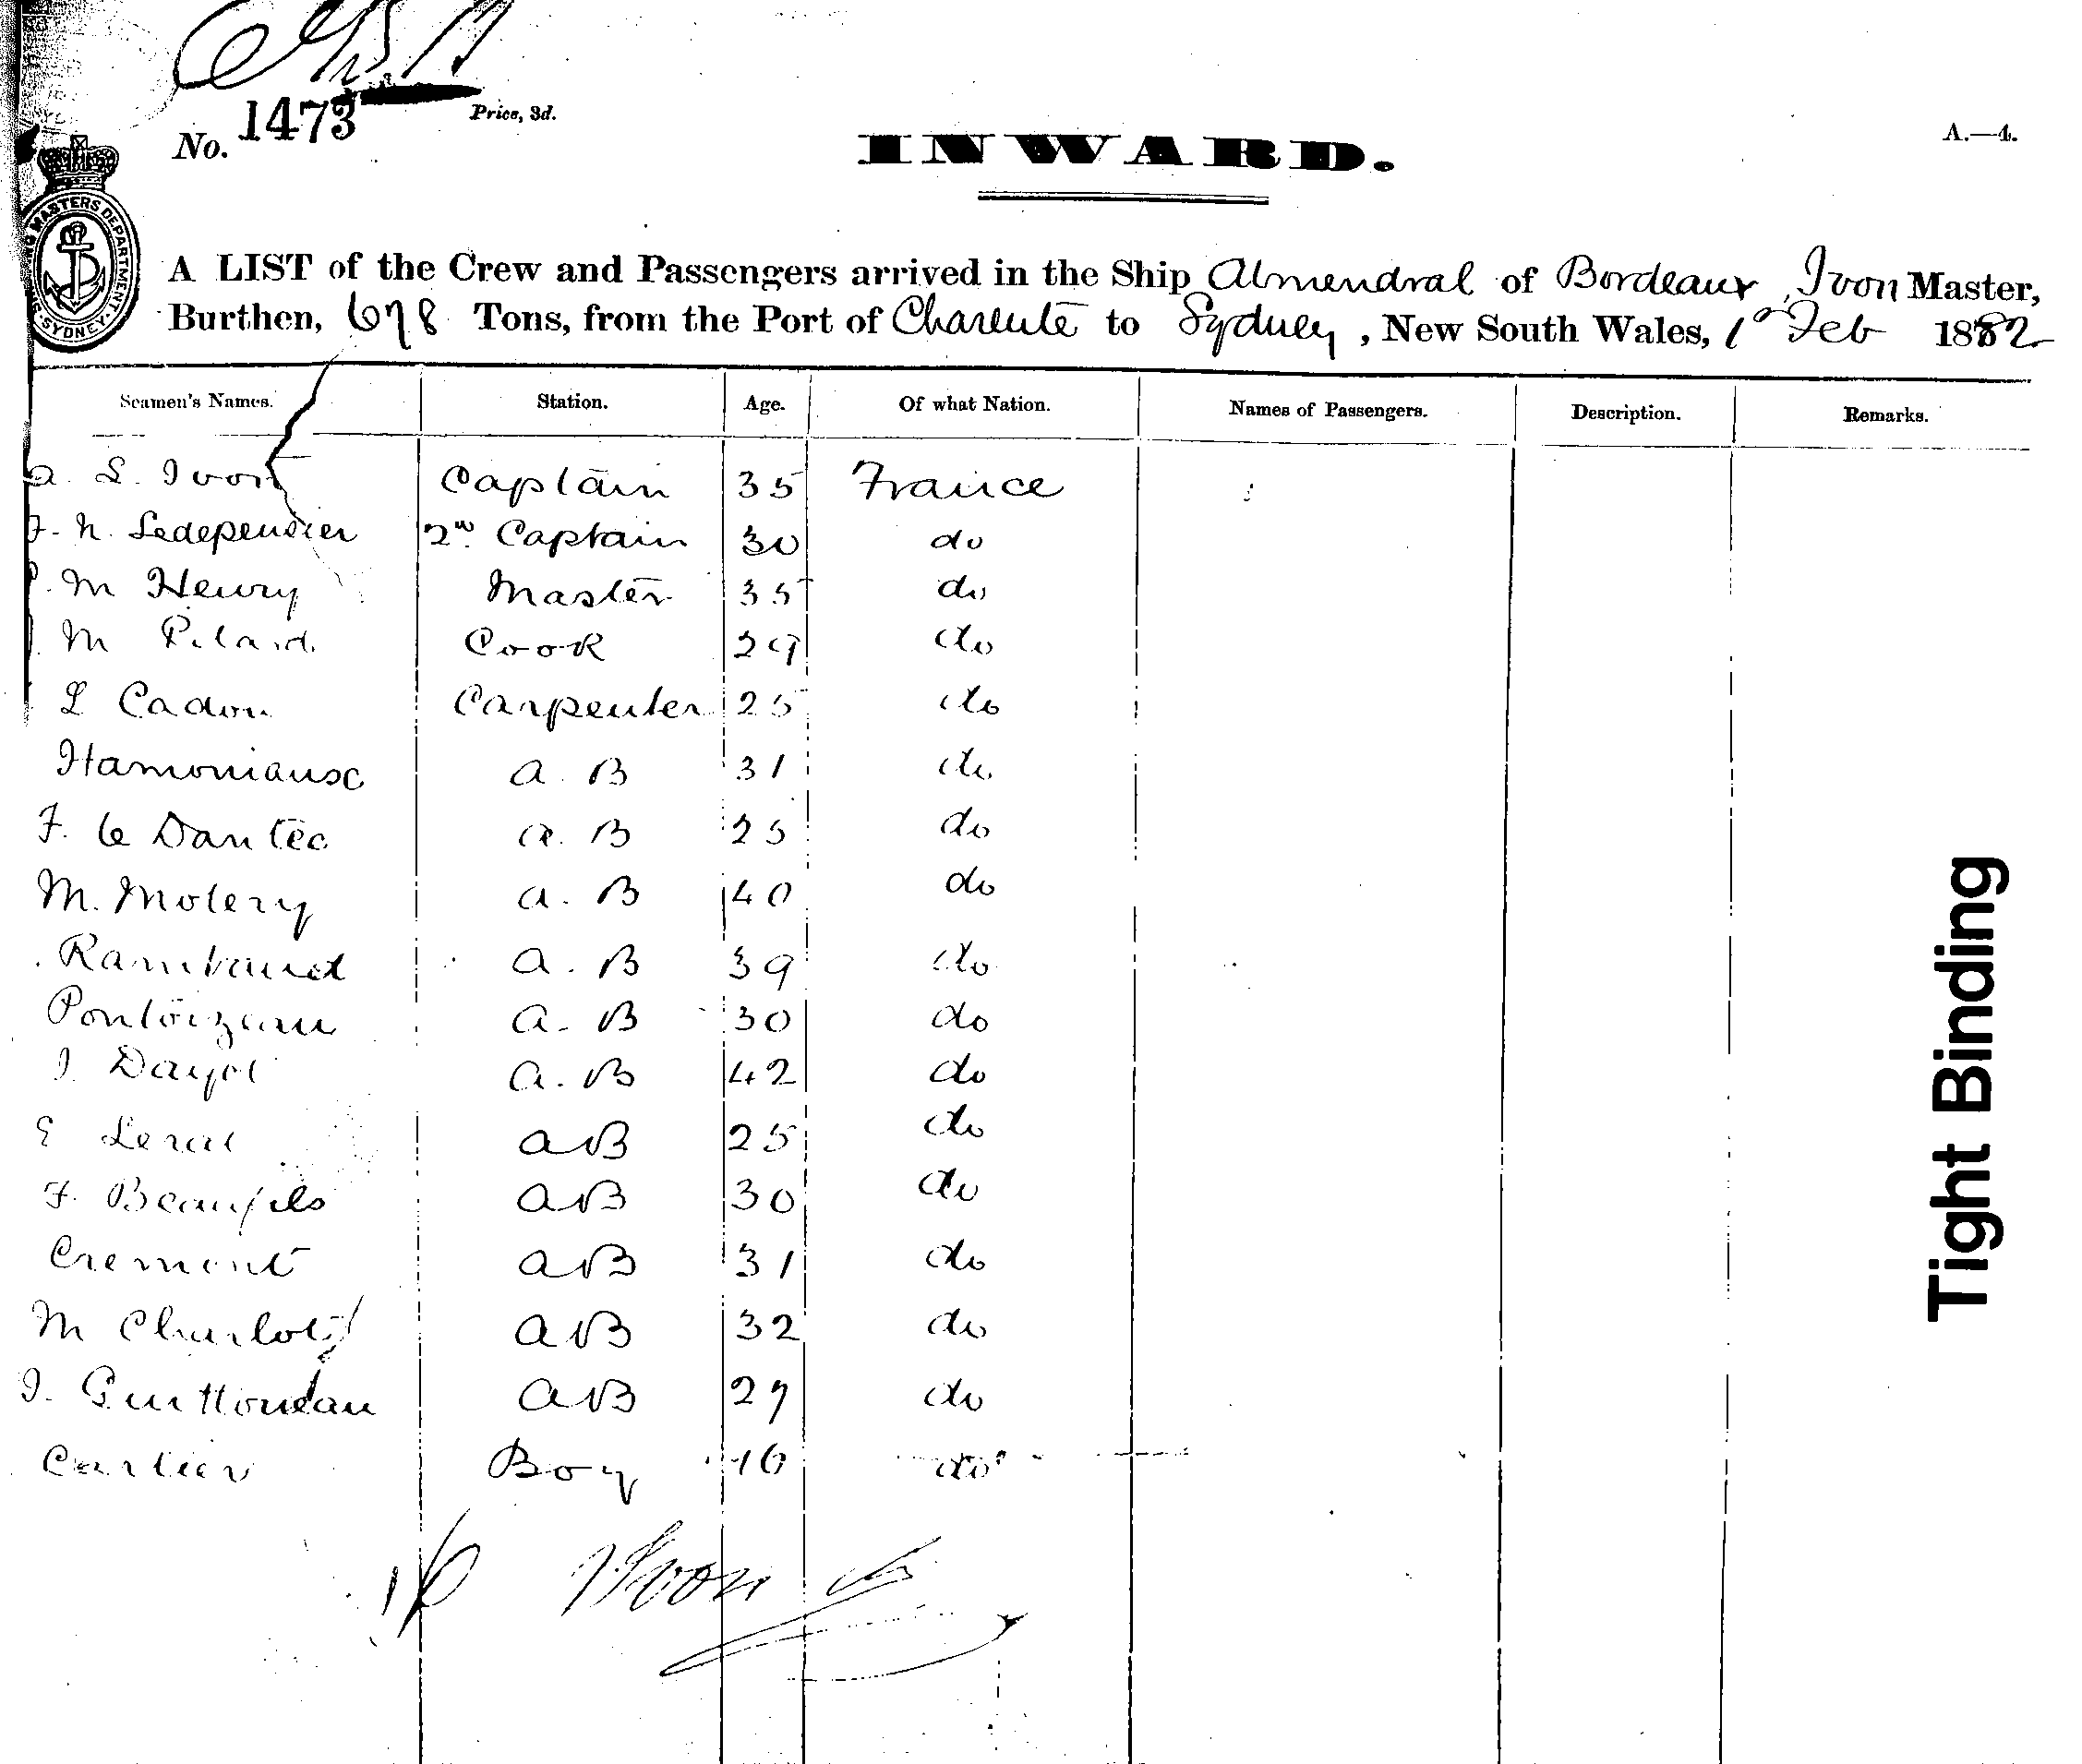 No. 1473 Price, 3d.
A.—4.
INWARD.
MASTERS DEPARTMENT SYDNEY
A LIST of the Crew and Passengers arrived in the Ship Almendral of Bordeaux, Ivon Master,
Burthen, 678 Tons, from the Port of Charente to Sydney, New South Wales, 1st Feb 1882
Seamen's Names. Station. Age. Of what Nation. Names of Passengers. Description. Remarks.
a. L. Ivon Captain 35 France
F. N. Ledepensier 2nd Captain 30 do
P. M Henry Master 35 do
M Pilard Cook 29 do
L Cadou Carpenter 25 do
Hamoniausc a. B 31 do
F. Le Dantec a. B 25 do
M. Molery a. B 40 do
Rambaud a. B 39 do
Pontoizeau a. B 30 do
J. Dayot a. B 42 do
E Lerat aB 25 do
F. Beaufils aB 30 do
Cremont aB 31 do
M Charlot aB 32 do
J. Guittoneau aB 27 do
Cartier Boy 16 do
Ivon
Tight Binding